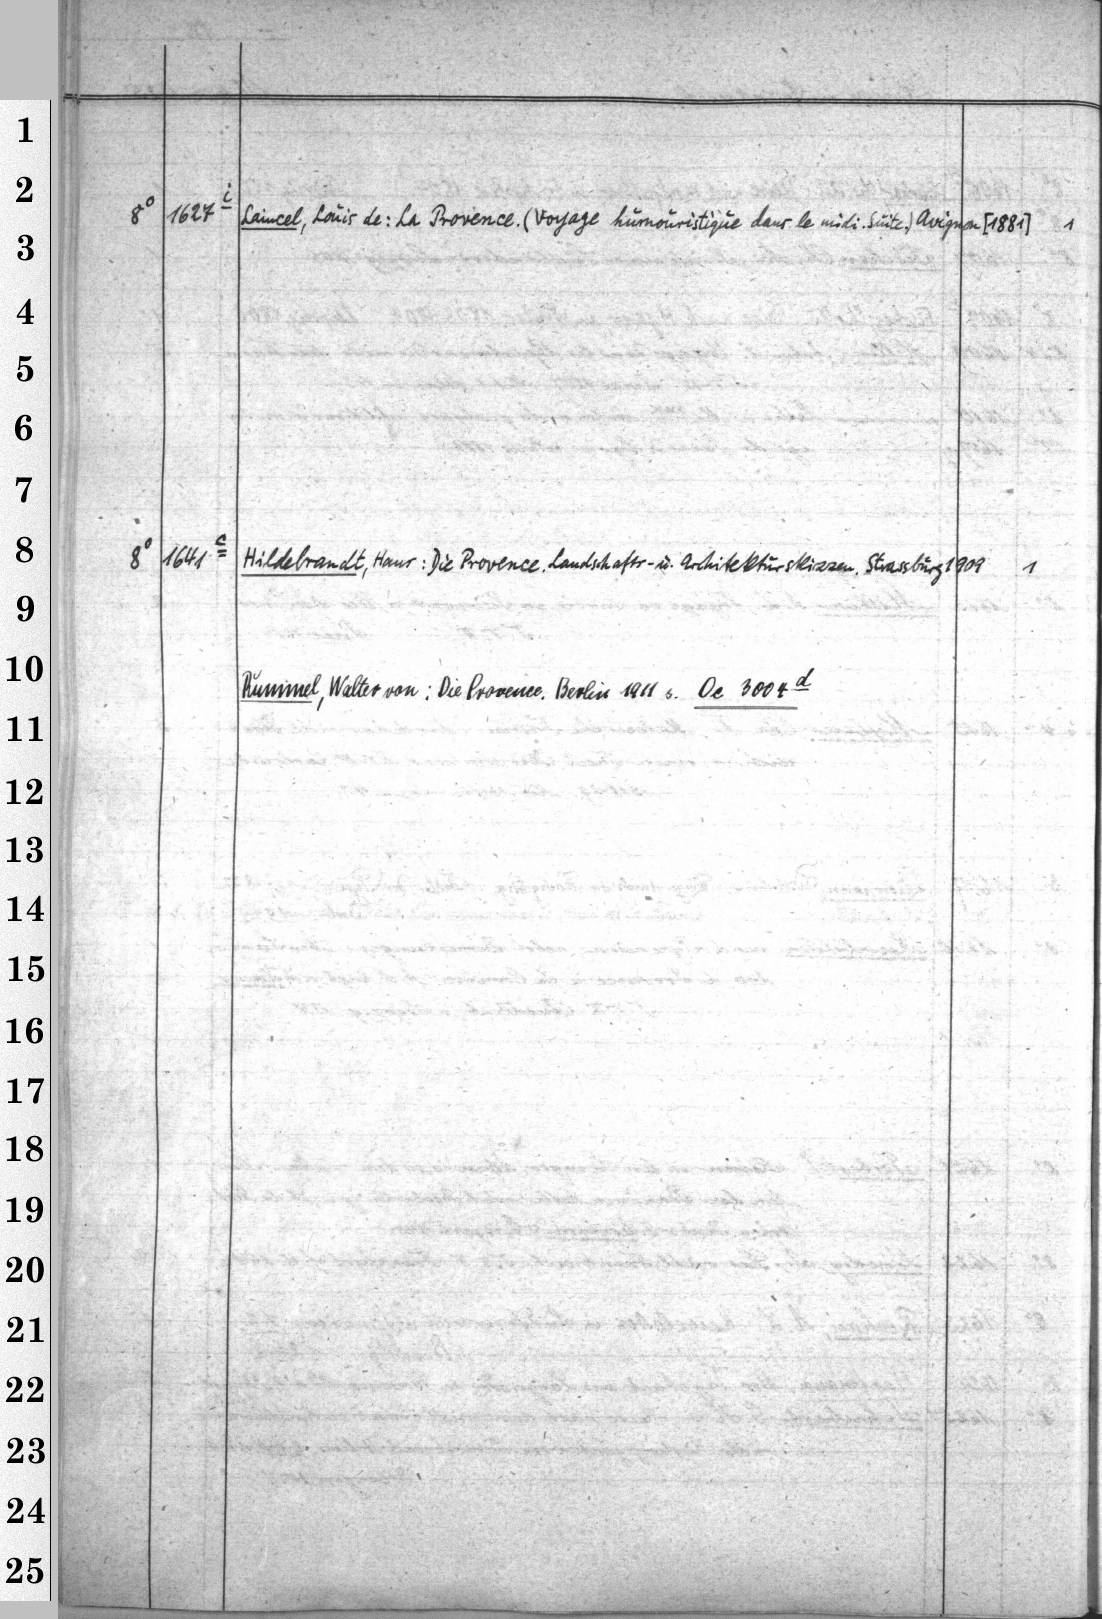 1
2
8° 1627 i Laincel, Louis de: La Provence. (Voyage humouristique dans le midi. Suite.) Avignon [1881] 1
3
4
5
6
7
8
8° 1641 c Hildebrandt, Hans: Die Provence. Landschafts- u. Architekturskizzen. Strassburg 1909 1
9
10
Rummel, Walter von: Die Provence. Berlin 1911 s. Oe 3004 d
11
12
13
14
15
16
17
18
19
20
21
22
23
24
25